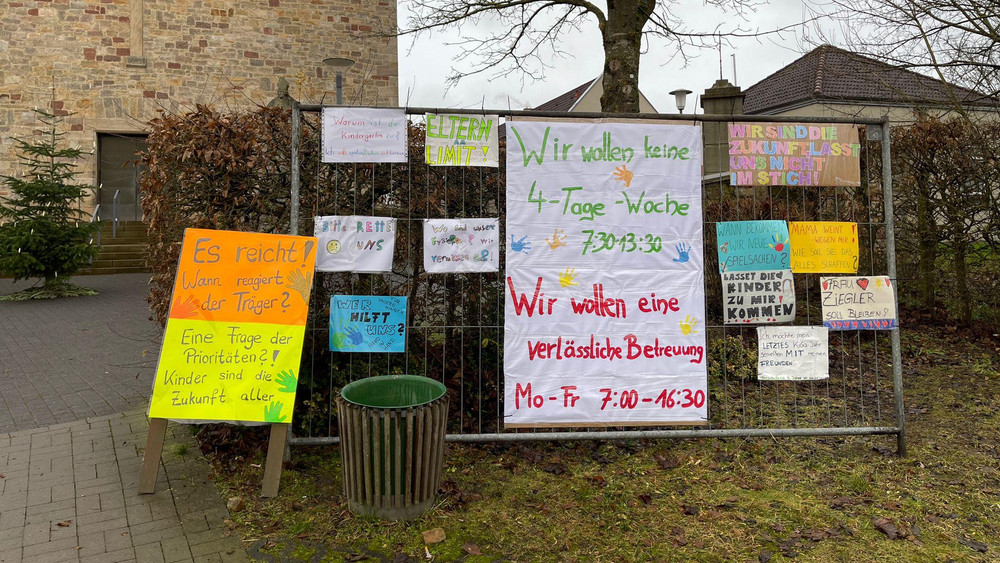 Es reicht!
Wann reagiert
der Träger?
Eine Frage der
Prioritäten?!
Kinder sind die
Zukunft aller
Warum ist die
Kindergarten
ELTERN
LIMIT!
Bitte Rettet
UNS
WER
HILFT
UNS?
Wir wollen keine
4-Tage-Woche
7:30-13:30
Wir wollen eine
verlässliche Betreuung
Mo-Fr 7:00-16:30
WIR SIND DIE
ZUKUNFT LASST
UNS NICHT
IM STICH!
WANN BEKOMMEN
WIR NEUE
SPIELSACHEN?
MAMA WEINT
WEGEN MIR
WIE SOLL SIE DAS
ALLES SCHAFFEN?
LASSET DIE
KINDER
ZU MIR
KOMMEN
FRAU
ZIEGLER
SOLL BLEIBEN!
Ich möchte mein
LETZTES KiGa Jahr
genießen MIT meinen
FREUNDEN